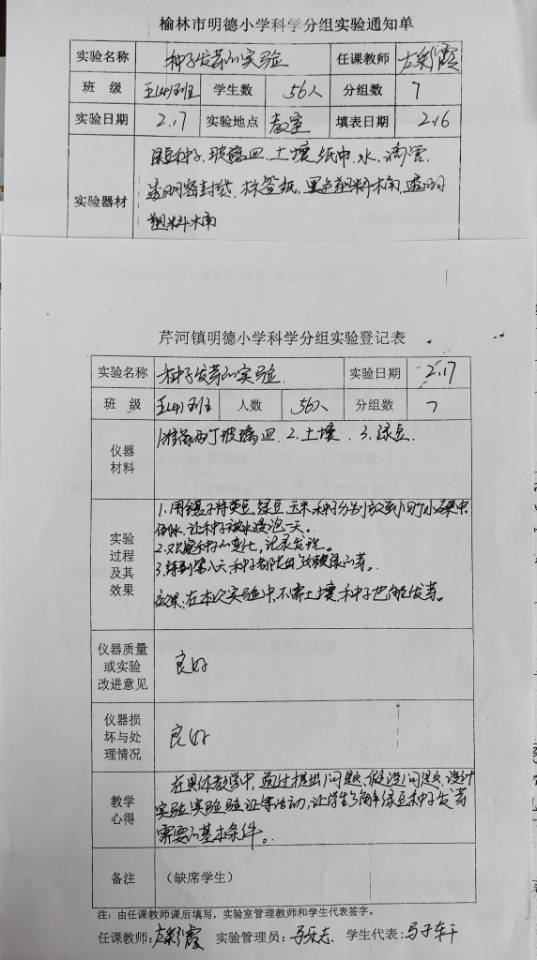 榆林市明德小学科学分组实验通知单
实验名称 种子发芽的实验 任课教师 左彩霞
班 级 五(4)班 学生数 56人 分组数 7
实验日期 2.17 实验地点 教室 填表日期 2.16
实验器材 种子、玻璃皿、土壤、纸巾、水、滴管、
透明密封袋、标签纸、黑色塑料 透明
塑料
芹河镇明德小学科学分组实验登记表
实验名称 种子发芽的实验 实验日期 2.17
班 级 五(4)班 人数 56人 分组数 7
仪器
材料
1. 玻璃皿 2.土壤 3.绿豆
实验
过程
及其
效果
1.用镊子将黄豆、绿豆、玉米种子分别放到
倒水,让种子 一天。
2.观察种子的变化,记录发现。
3. 第八天,种子都
效果:在本次实验中,不需土壤,种子也能发芽。
仪器质量
或实验
改进意见
良好
仪器损
坏与处
理情况
良好
教学
心得
在具体教学中,通过提出问题、假设问题、设计
实验、实验验证等活动,让学生了解绿豆种子发芽
需要的基本条件。
备注 (缺席学生)
注:由任课教师课后填写,实验室管理教师和学生代表签字。
任课教师:左彩霞 实验管理员: 学生代表: